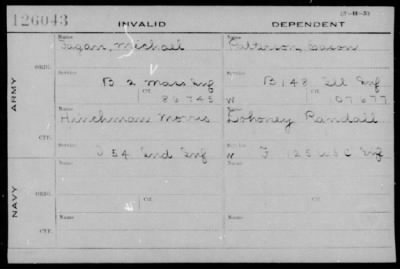 126043
INVALID
DEPENDENT
ARMY
ORIG.
Name
Fagan, Michael
Name
Patterson,
Service
B 2 Mass Inf
Ctf.
86745
Service
B 148 Ill Inf
W
Ctf.
107677
CTF.
Name
Hinchman Morris
Name
Dohoney Randall
Service
I 54 Ind Inf
Service
W F 125 U S C Inf
NAVY
ORIG.
Name
Service
Ctf.
Name
Service
Ctf.
CTF.
Name
Name